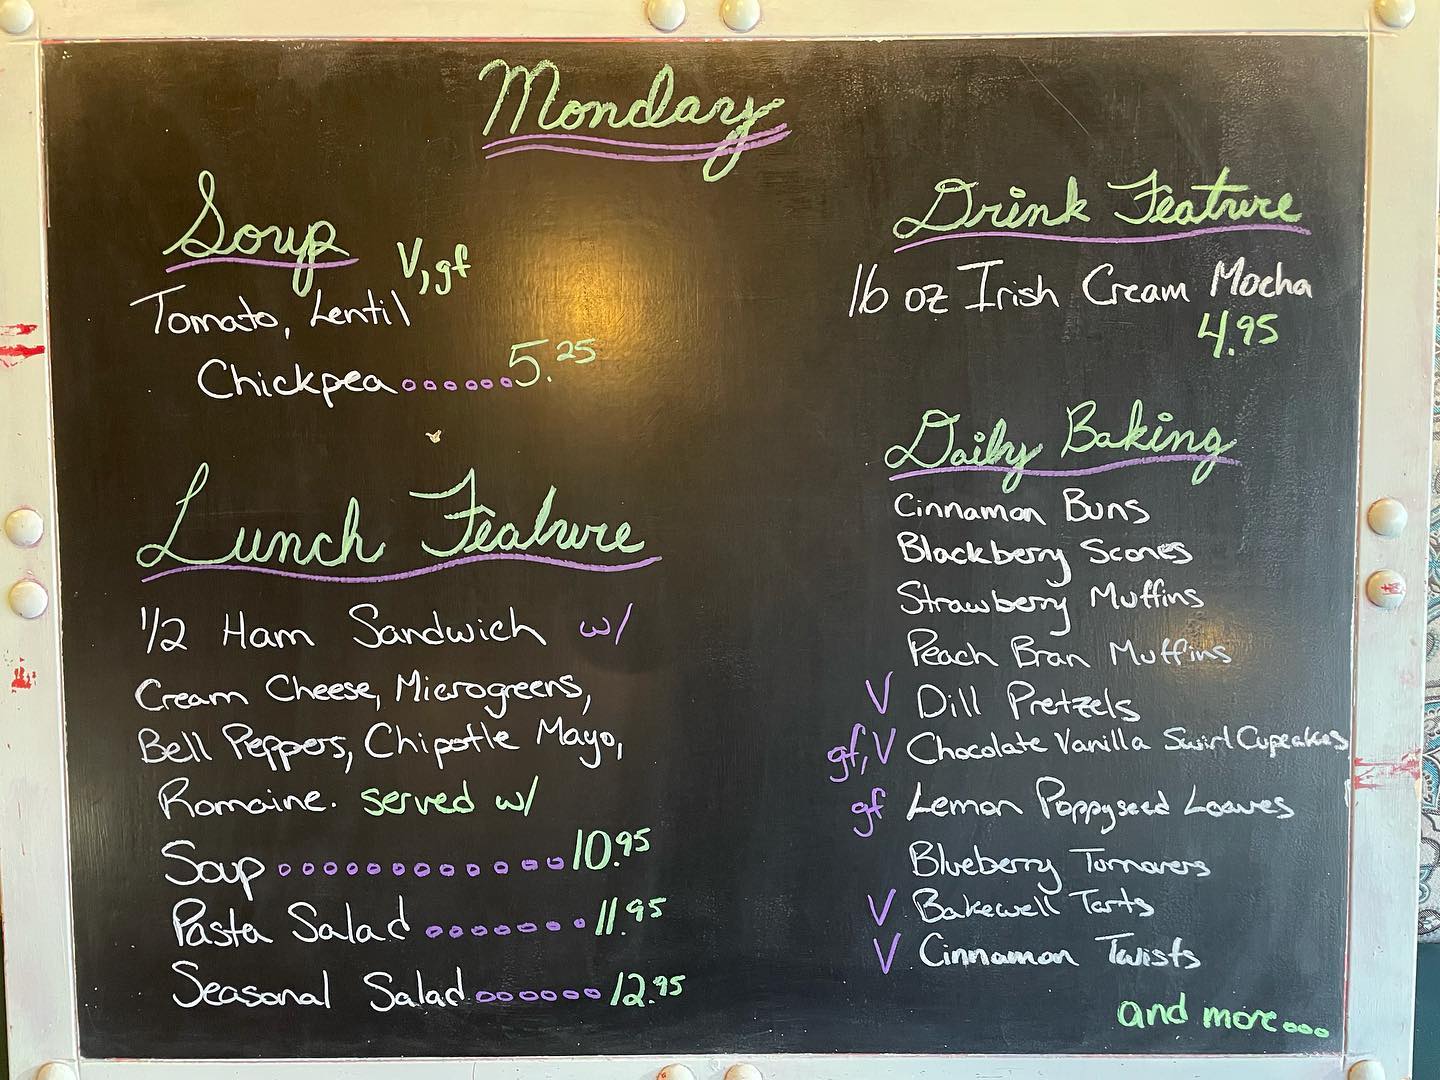 Monday
Soup V, gf
Tomato, Lentil
Chickpea......5.25
Lunch Feature
1/2 Ham Sandwich w/
Cream Cheese, Microgreens,
Bell Peppers, Chipotle Mayo,
Romaine. served w/
Soup............10.95
Pasta Salad.......11.95
Seasonal Salad......12.95
Drink Feature
16 oz Irish Cream Mocha
4.95
Daily Baking
Cinnamon Buns
Blackberry Scones
Strawberry Muffins
Peach Bran Muffins
V Dill Pretzels
gf, V Chocolate Vanilla Swirl Cupcakes
gf Lemon Poppyseed Loaves
Blueberry Turnovers
V Bakewell Tarts
V Cinnamon Twists
and more...